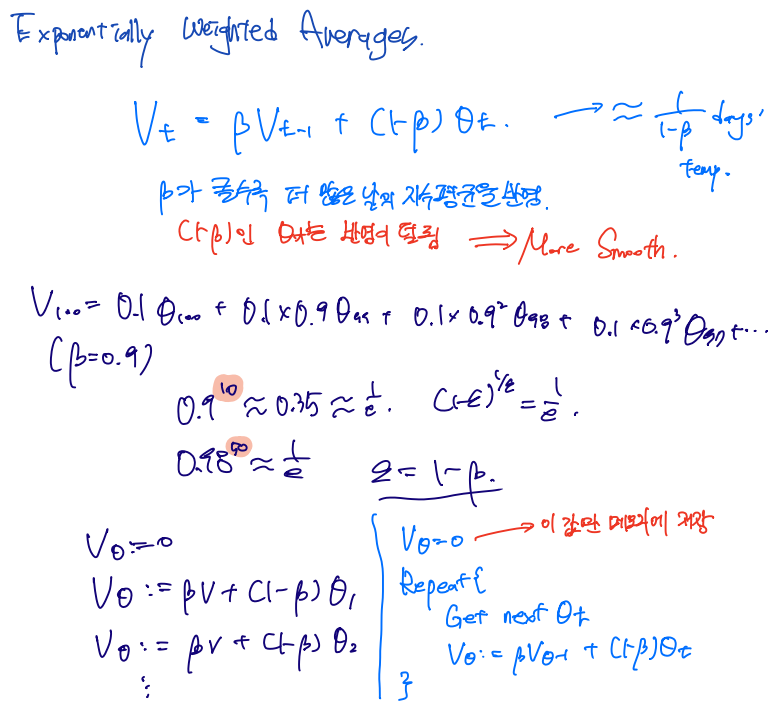 Exponentially Weighted Averages.
V_t = βV_{t-1} + (1-β)θ_t. → ≈ 1/(1-β) days' temp.
β가 클수록 더 많은 날의 지수평균을 반영.
(1-β)인 θ_t는 반영이 덜됨 ⟹ More Smooth.
V_100 = 0.1 θ_100 + 0.1×0.9 θ_99 + 0.1×0.9² θ_98 + 0.1×0.9³ θ_97 + ...
(β=0.9)
0.9^10 ≈ 0.35 ≈ 1/e. (1-ε)^{1/ε} = 1/e.
0.98^50 ≈ 1/e
ε = 1-β.
V_θ := 0
V_θ := βV + (1-β)θ_1
V_θ := βV + (1-β)θ_2
⋮
V_θ=0 → 이 값만 메모리에 저장
Repeat{
Get next θ_t
V_θ := βV_{θ-1} + (1-β)θ_t
}